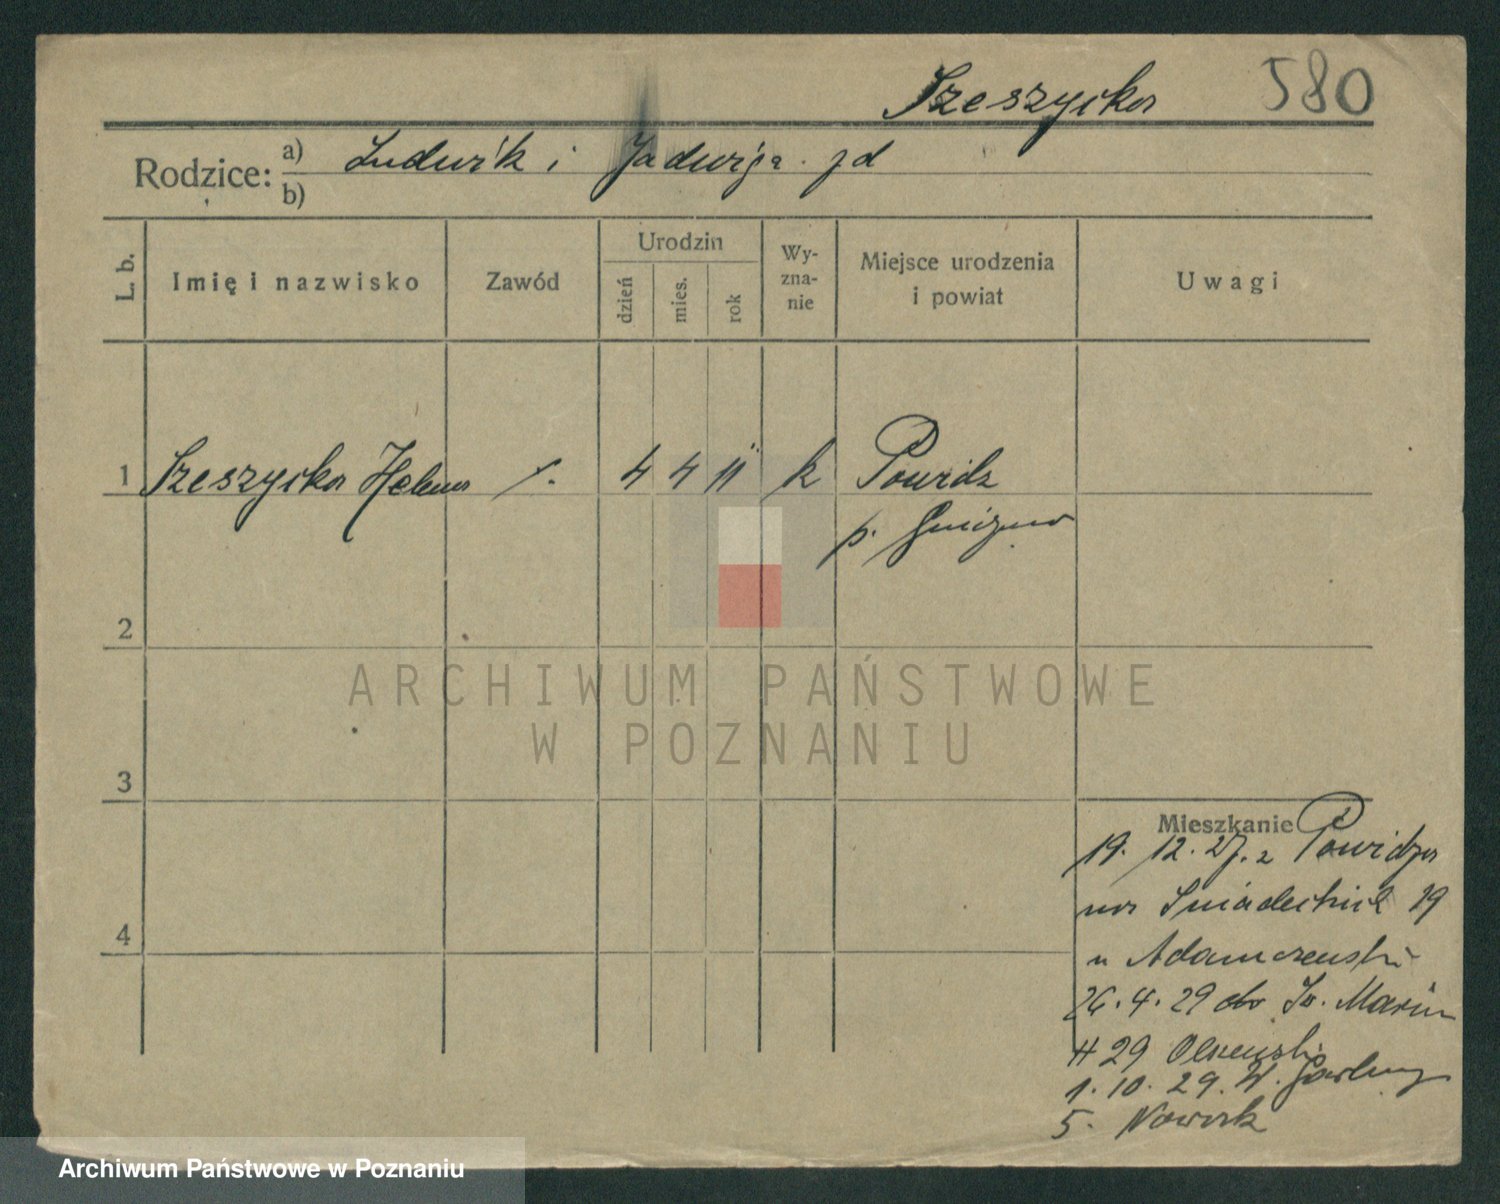 Szeszycka 580
Rodzice: a) Ludwik i Jadwiga jd
b)
L. b. Imię i nazwisko Zawód Urodzin dzień mies. rok Wyznanie Miejsce urodzenia i powiat Uwagi
1 Szeszycka Helena /. 4 4 11 k Powidz
p. Gniezno
2
ARCHIWUM PAŃSTWOWE
W POZNANIU
3
Mieszkanie
19. 12. 27. z Powidza
na Śniadeckich 19
u Adamczewski
4
26. 4. 29 do Św. Marcin
29 Olszewski
1. 10. 29. W. Garbary
5. Nowak
Archiwum Państwowe w Poznaniu